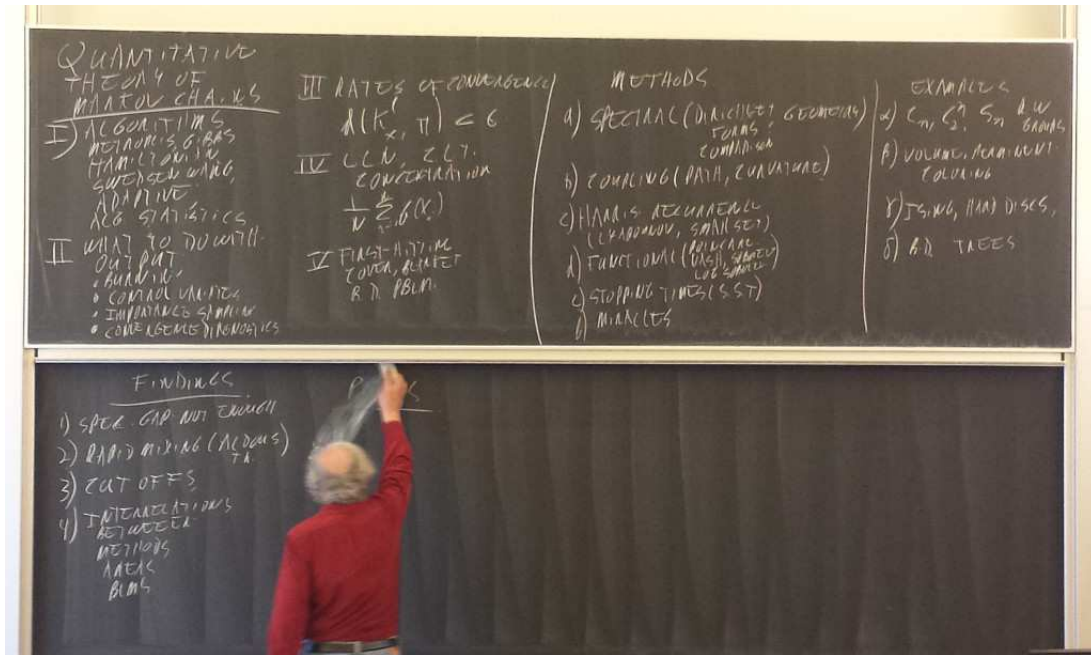 QUANTITATIVE
THEORY OF
MARKOV CHAINS
I) ALGORITHMS
METROPOLIS, GIBBS
HAMILTONIAN
SWENSEN WANG,
ADAPTIVE.
ALG STATISTICS
II WHAT TO DO WITH
OUTPUT
• BURN IN
• CONTROL VARIATES
• IMPORTANCE SAMPLING
• CONVERGENCE DIAGNOSTICS
III RATES OF CONVERGENCE
IV LLN, CLT.
CONCENTRATION
V FIRST-HITTING
COVER, BLANKET
B.D. PBLM.
METHODS
a) SPECTRAL (DIRICHLET GEOMETRY)
FORMS,
COMPARISON
b) COUPLING (PATH, CURVATURE)
c) HARRIS RECURRENCE
(LYAPONOV, SMALL SET)
d) FUNCTIONAL (POINCARE
NASH, SOBOLEV
LOG SOBOLEV)
e) STOPPING TIMES (S.S.T)
f) MIRACLES
EXAMPLES
α) Cₙ, C₂ⁿ, Sₙ R W
GROUPS
β) VOLUME, PERMINENT
COLORING
γ) ISING, HARD DISCS,
δ) B.D. TREES
FINDINGS
1) SPEC. GAP NOT ENOUGH
2) RAPID MIXING (ALDOUS)
3) CUT OFFS
4) INTERRELATIONS
BETWEEN
METHODS
AREAS
BLMS